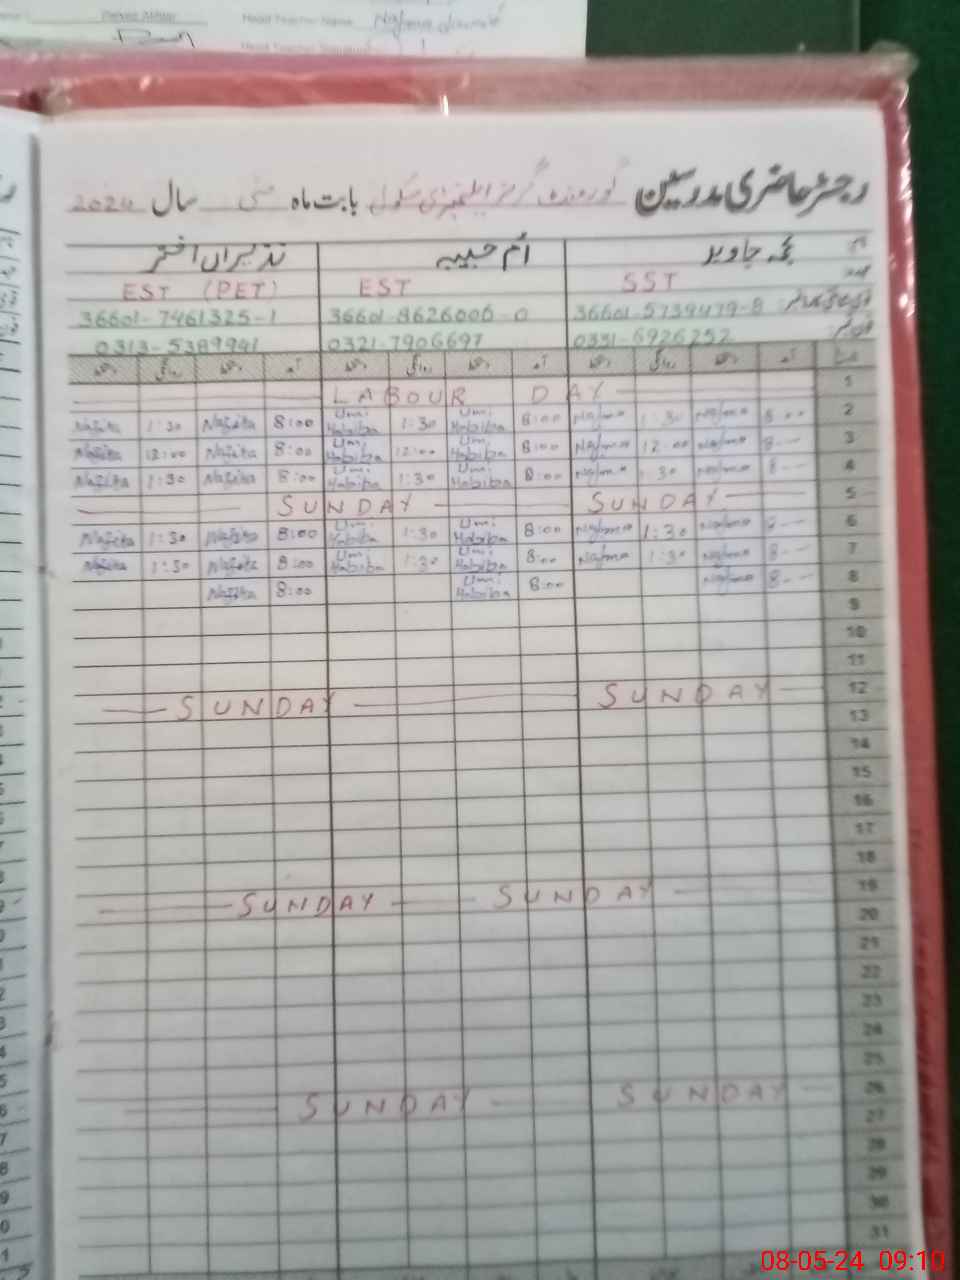 Head Teacher Name
رجسٹر حاضری مدرسین گورنمنٹ گرلز ایلیمنٹری سکول بابت ماہ مئی سال 2024
نجمہ جاوید ام حبیبہ نذیراں اختر
SST EST EST (PET)
36601-5739479-8 36601-8626006-0 36601-7461325-1
0331-6926252 0321-7906697 0313-5389941
LABOUR DAY 1
Nazira 1:30 Nazira 8:00 Umi Habiba 1:30 Umi Habiba 8:00 Najma 1:30 Najma 8:00 2
Nazira 12:00 Nazira 8:00 Umi Habiba 12:00 Umi Habiba 8:00 Najma 12:00 Najma 8-- 3
Nazira 1:30 Nazira 8:00 Umi Habiba 1:30 Umi Habiba 8:00 Najma 1:30 Najma 8-- 4
SUNDAY SUNDAY 5
Nazira 1:30 Nazira 8:00 Umi Habiba 1:30 Umi Habiba 8:00 Najma 1:30 Najma 8-- 6
Nazira 1:30 Nazira 8:00 Umi Habiba 1:30 Umi Habiba 8:00 Najma 1:30 Najma 8-- 7
Nazira 8:00 Umi Habiba 8:00 Najma 8-- 8
9
10
11
SUNDAY SUNDAY 12
13
14
15
16
17
18
SUNDAY SUNDAY 19
20
21
22
23
24
25
SUNDAY SUNDAY 26
27
28
29
30
31
08-05-24 09:10